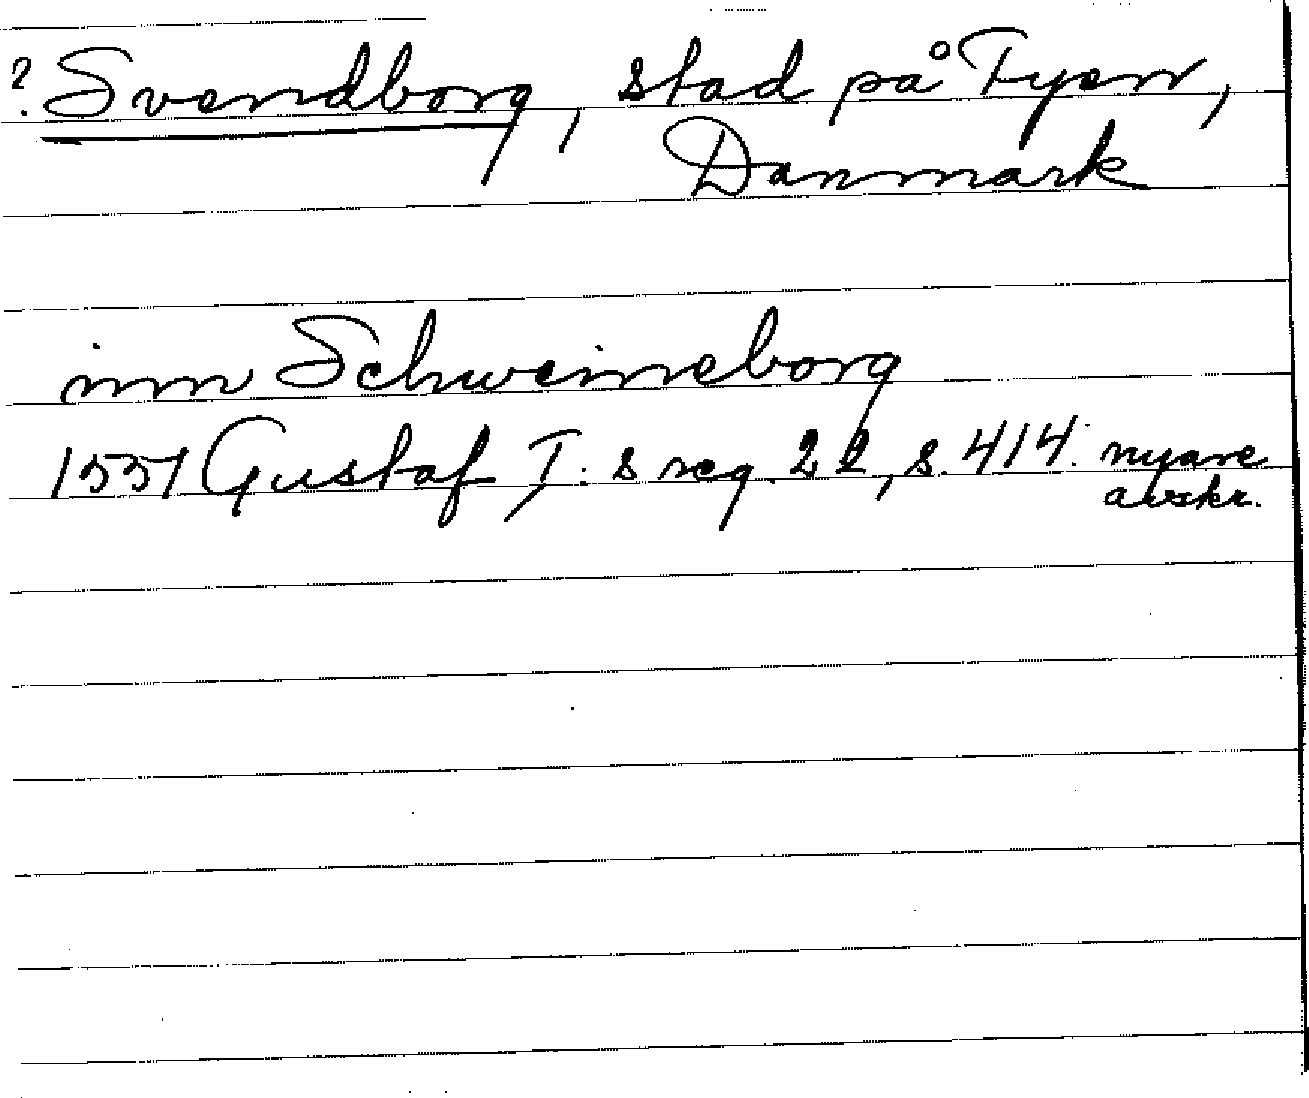 ? Svendborg, stad på Fyen,
Danmark
inn Schweineborg
1551 Gustaf I:s reg. 22, s. 414. nyare
avskr.